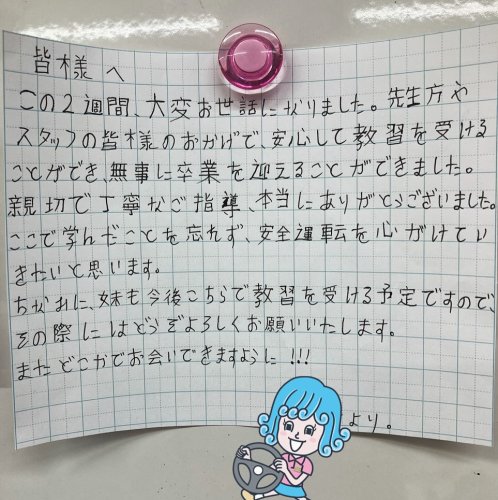 皆様へ
この2週間、大変お世話になりました。先生方や
スタッフの皆様のおかげで、安心して教習を受ける
ことができ、無事に卒業を迎えることができました。
親切で丁寧なご指導、本当にありがとうございました。
ここで学んだことを忘れず、安全運転を心がけてい
きたいと思います。
ちなみに、妹も今後こちらで教習を受ける予定ですので、
その際にはどうぞよろしくお願いいたします。
またどこかでお会いできますように!!!
より。